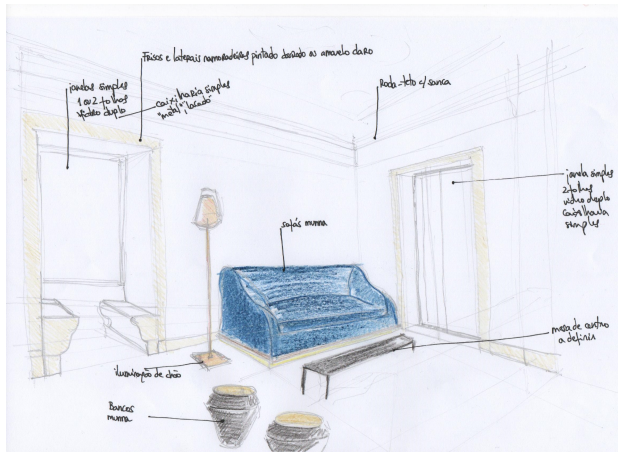 Frisos e laterais namoradeiras pintado dourado ou amarelo claro
janelas simples
1 ou 2 folhos
vidro duplo
caixilharia simples
"metal", lacado
Roda-teto c/ sanca
janela simples
2 folhos
vidro duplo
caixilharia
simples
sofás munna
mesa de centro
a definir
iluminação de chão
Bancos
munna